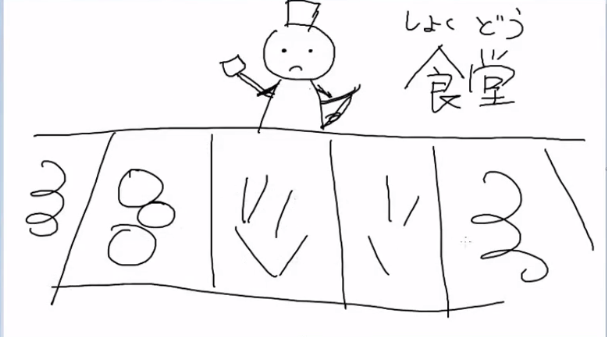 しょく どう
食堂